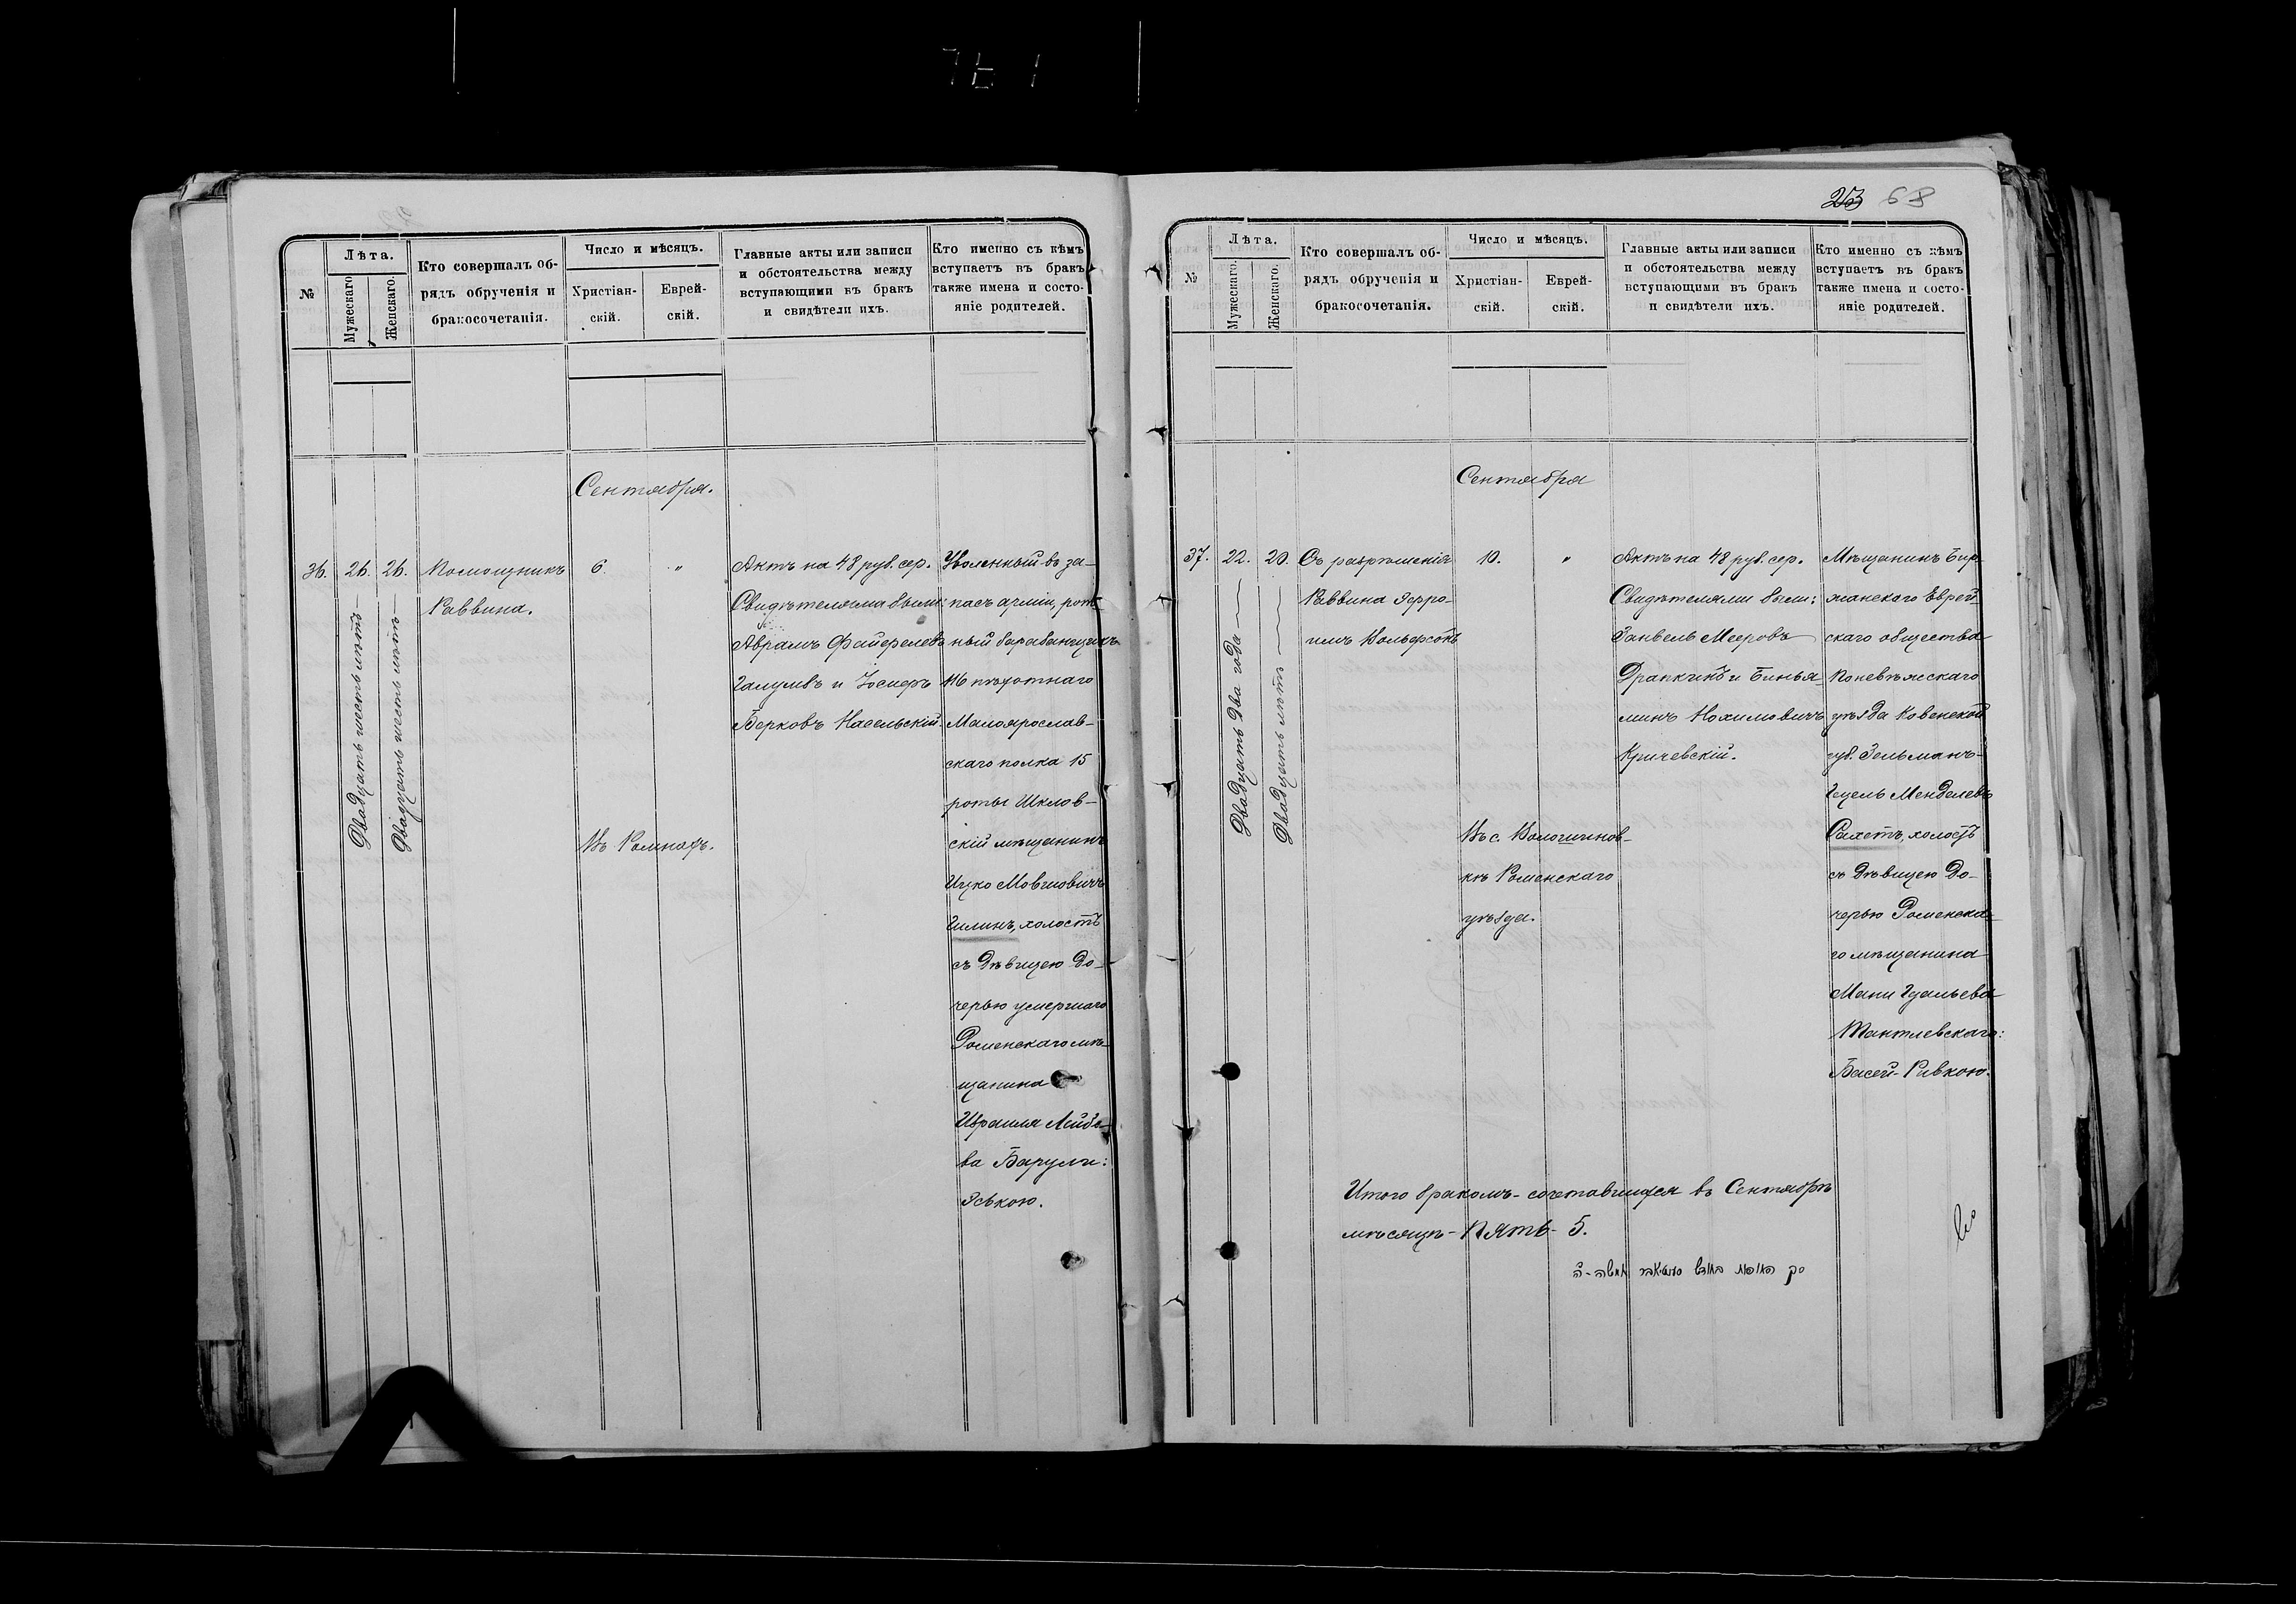 23 68
№
Лѣта.
Мужескаго.
Женскаго.
Кто совершалъ об-
рядъ обрученія и
бракосочетанія.
Число и мѣсяцъ.
Христіан-
скій.
Еврей-
скій.
Главные акты или записи
и обстоятельства между
вступающими въ бракъ
и свидѣтели ихъ.
Кто именно съ кѣмъ
вступаетъ въ бракъ
также имена и состо-
яніе родителей.
Сентября.
36.
26.
Двадцать шесть лѣтъ
26.
Двадцать шесть лѣтъ
Помощникъ
Раввина.
6.
"
Въ Ромнахъ.
Актъ на 48 руб. сер.
Свидѣтелями были:
Абрамъ
и Іосифъ
Берковъ
Уволенный въ за-
пасъ арміи, рот-
ный барабанщикъ
116 пѣхотнаго
Малоярослав-
скаго полка 15
роты Шклов-
скій мѣщанинъ
Ицко Мовшовичъ
Шлинъ, холостъ
съ дѣвицею до-
черью умершаго
Роменскаго мѣ-
щанина
Израиля Лейбо-
ва
Эською.
№
Лѣта.
Мужескаго.
Женскаго.
Кто совершалъ об-
рядъ обрученія и
бракосочетанія.
Число и мѣсяцъ.
Христіан-
скій.
Еврей-
скій.
Главные акты или записи
и обстоятельства между
вступающими въ бракъ
и свидѣтели ихъ.
Кто именно съ кѣмъ
вступаетъ въ бракъ
также имена и состо-
яніе родителей.
Сентября
37.
22.
Двадцать два года
20.
Двадцать лѣтъ
Съ разрѣшенія
Раввина
Вольфсонъ
10.
"
Въ с.
кѣ Роменскаго
уѣзда.
Актъ на 48 руб. сер.
Свидѣтелями были:
Занвель Мееровъ
Драпкинъ и Бинья-
минъ Нохимовичъ
Кричевскій.
Мѣщанинъ Бир-
жанскаго Еврей-
скаго общества
Поневѣжскаго
уѣзда Ковенской
губ. Зельманъ-
Гецель Менделевъ
холостъ
съ дѣвицею до-
черью Роменска-
го мѣщанина
Басей-Ривкою.
Итого бракомъ-сочетавшихся въ Сентябрѣ
мѣсяцѣ - Пять - 5.